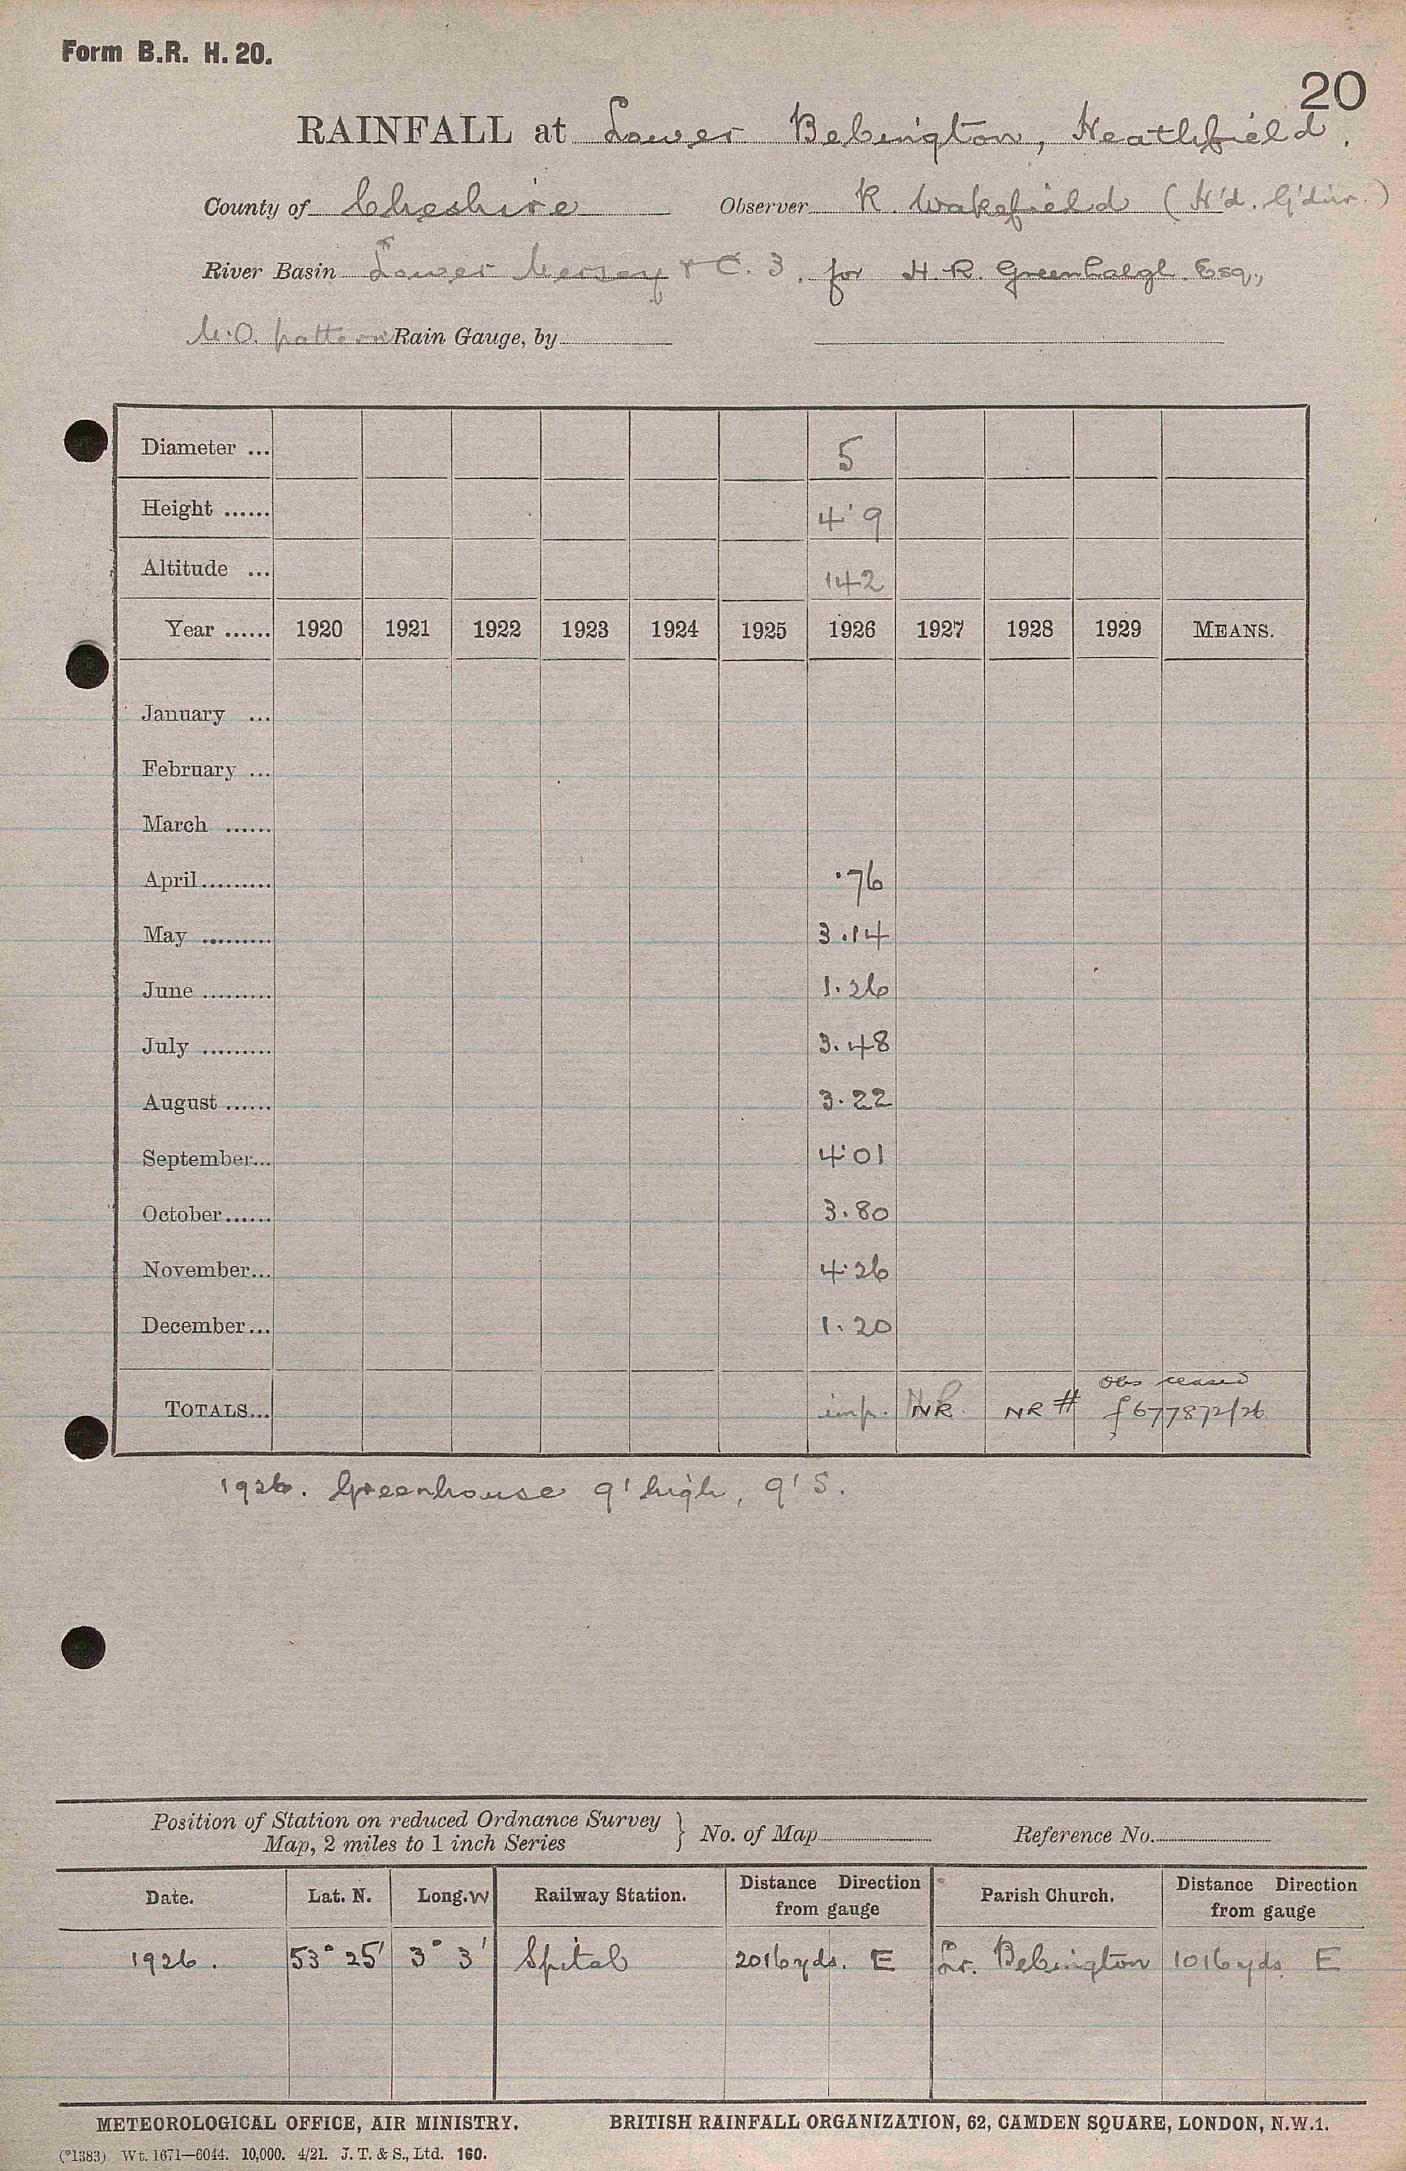 Form B.R. H. 20.
20
RAINFALL at Lower Bebington, Heathfield.
County of Cheshire Observer R. Wakefield (H'd. G'd'nr.)
River Basin Lower Mersey & C. 3. for H. R. Greenhalgh Esq.,
M.O. pattern Rain Gauge, by
Diameter ... 5
Height ...... 4' 9
Altitude ... 142
Year ...... 1920 1921 1922 1923 1924 1925 1926 1927 1928 1929 MEANS.
January ...
February ...
March ......
April ......... ·76
May ......... 3.14
June ......... 1.26
July ......... 3.48
August ...... 3.22
September... 4.01
October ...... 3.80
November... 4.26
December... 1.20
obs ceased
TOTALS... imp. NR. NR # f 677872/26
1926. Greenhouse 9' high, 9' S.
Position of Station on reduced Ordnance Survey
Map, 2 miles to 1 inch Series } No. of Map Reference No.
Date. Lat. N. Long. W Railway Station. Distance Direction from gauge Parish Church. Distance Direction from gauge
1926. 53° 25' 3° 3' Spital 2016 yds. E Lr. Bebington 1016 yds. E
METEOROLOGICAL OFFICE, AIR MINISTRY. BRITISH RAINFALL ORGANIZATION, 62, CAMDEN SQUARE, LONDON, N.W.1.
(*1383) Wt. 1671—6044. 10,000. 4/21. J. T. & S., Ltd. 160.